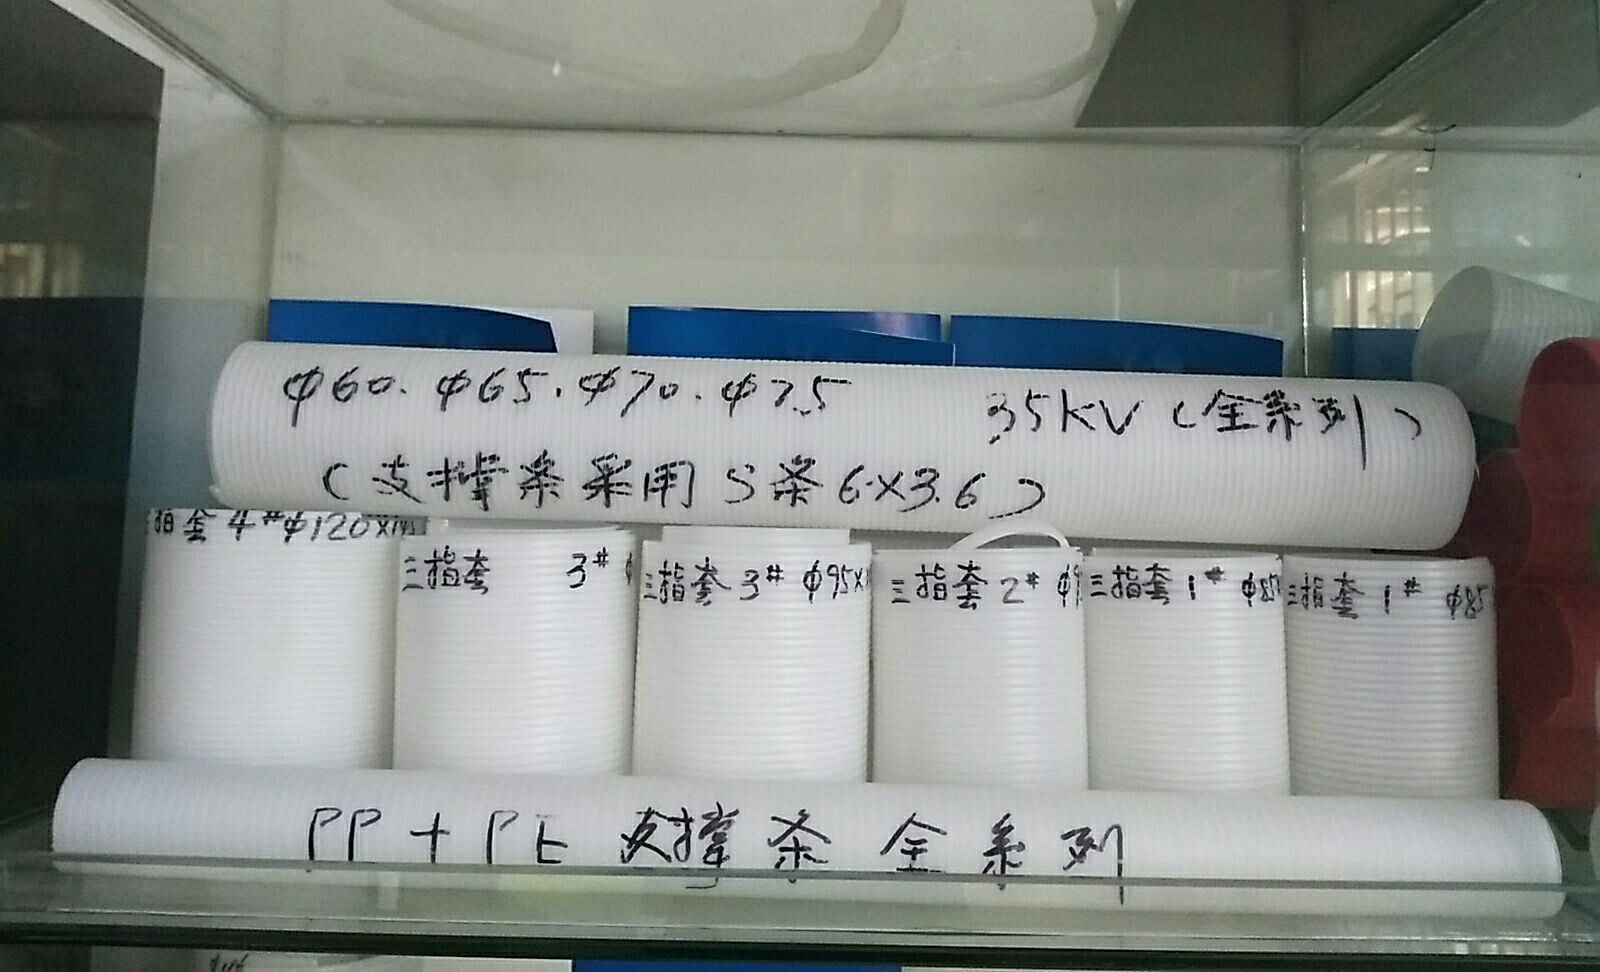 φ60.φ65.φ70.φ75 35KV(全系列)
(支撑条采用S条6×3.6)
指套 4# φ120×
三指套 3# φ
三指套 3# φ95×
三指套 2# φ9
三指套 1# φ85
三指套 1# φ85
PP+PE 支撑条 全系列